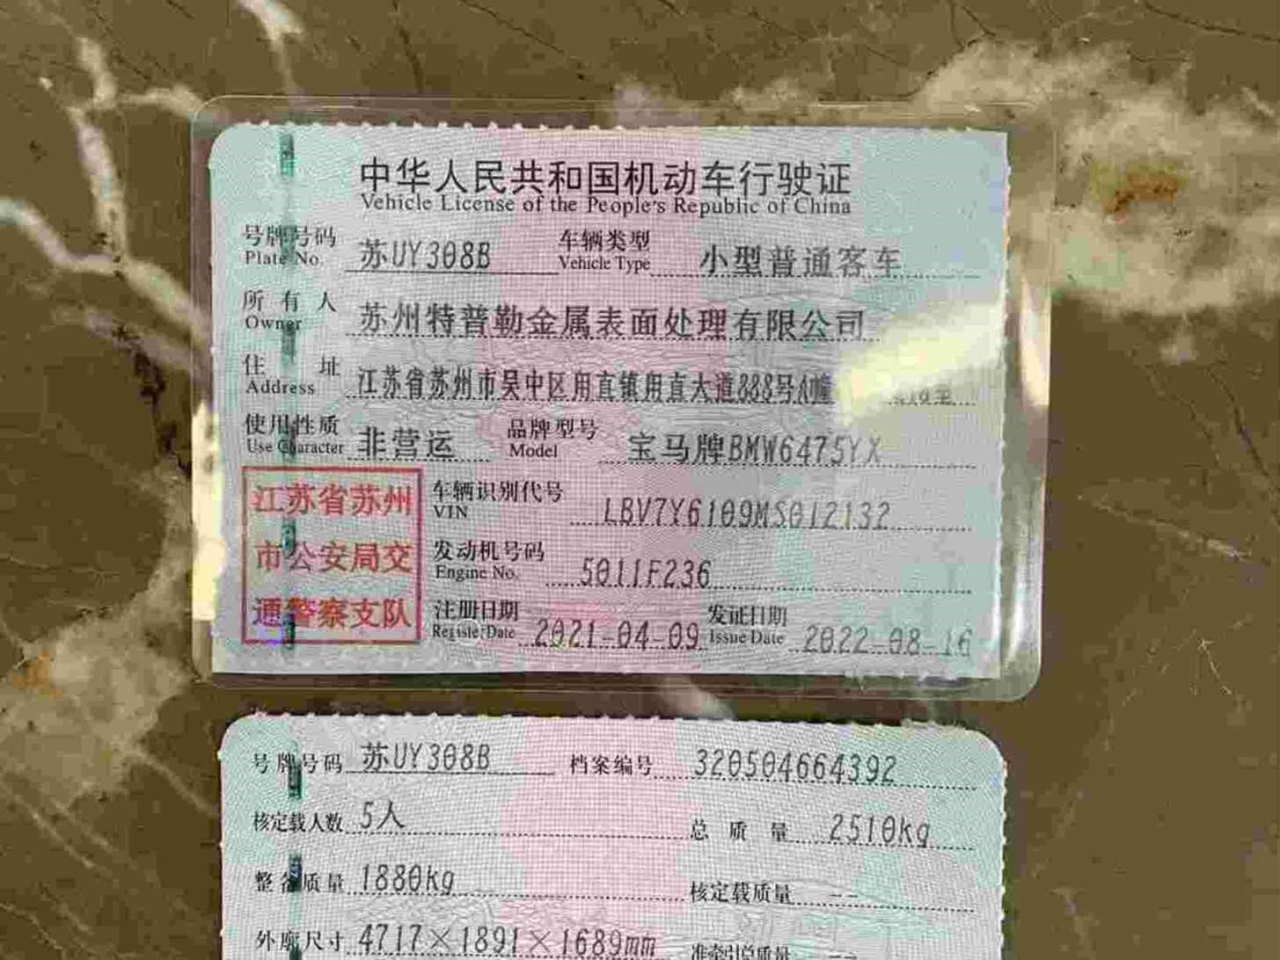 中华人民共和国机动车行驶证
Vehicle License of the People's Republic of China
号牌号码 苏UY308B 车辆类型 小型普通客车
Plate No. Vehicle Type
所有人 苏州特普勒金属表面处理有限公司
Owner
住址 江苏省苏州市吴中区甪直镇甪直大道888号A幢
Address
使用性质 非营运 品牌型号 宝马牌BMW6475YX
Use Character Model
江苏省苏州
市公安局交
通警察支队
车辆识别代号 LBV7Y6109MS012132
VIN
发动机号码 5011F236
Engine No.
注册日期 2021-04-09 发证日期 2022-08-16
Register Date Issue Date
号牌号码 苏UY308B 档案编号 320504664392
核定载人数 5人 总质量 2510kg
整备质量 1880kg 核定载质量 --
外廓尺寸 4717×1891×1689mm 准牵引总质量 --